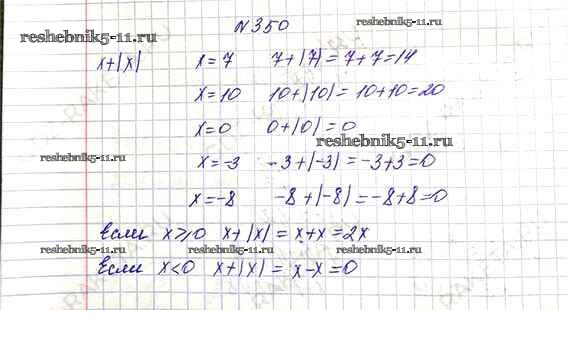 N350
reshebnik5-11.ru
reshebnik5-11.ru
x+|x| x=7 7+|7|=7+7=14
x=10 10+|10|=10+10=20
x=0 0+|0|=0
reshebnik5-11.ru
reshebnik5-11.ru x=-3 -3+|-3|=-3+3=0
x=-8 -8+|-8|=-8+8=0
Если x⩾0 x+|x|=x+x=2x
reshebnik5-11.ru reshebnik5-11.ru
Если x<0 x+|x|=x-x=0